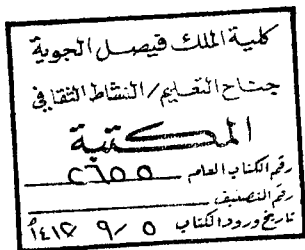 كلية الملك فيصل الجوية
جناح التعليم/النشاط الثقافي
المكتبة
رقم الكتاب العام ٢٦٥٥
رقم التصنيف
تاريخ ورود الكتاب ٥ / ٩ / ١٤١٢هـ